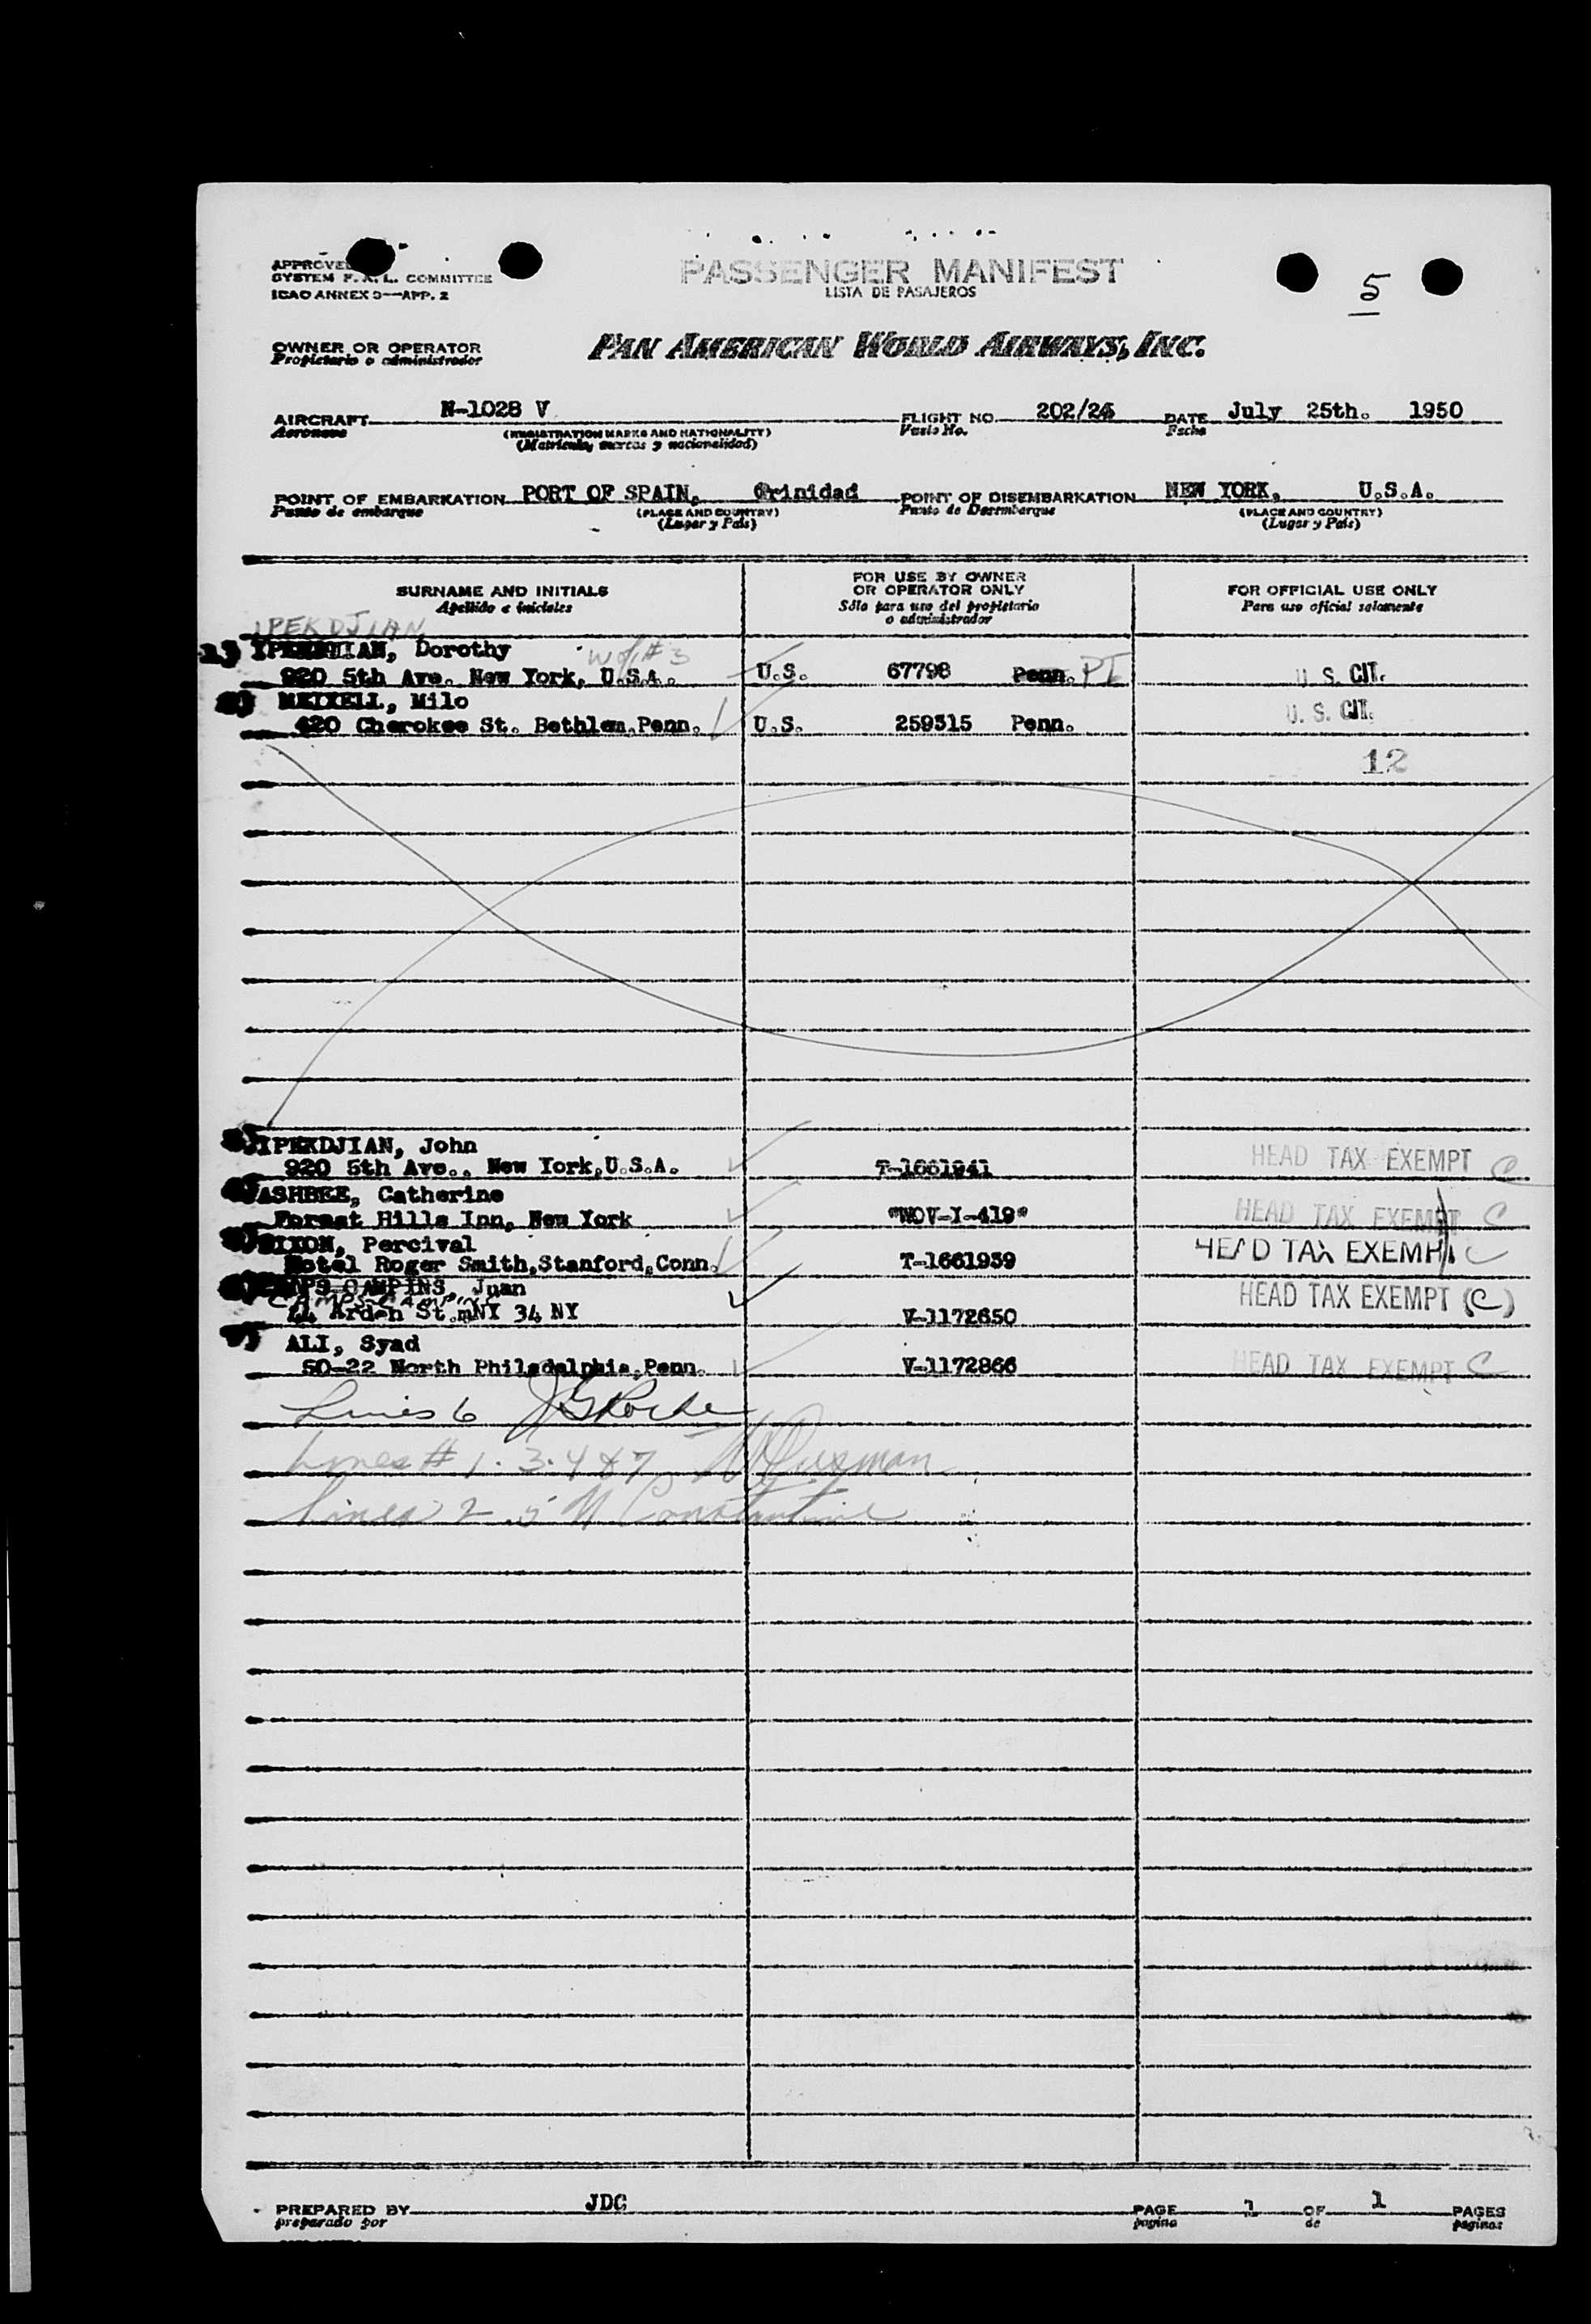 APPROVED
SYSTEM F. A. L. COMMITTEE
ICAO ANNEX 9—APP. 2
PASSENGER MANIFEST
LISTA DE PASAJEROS
5
OWNER OR OPERATOR
Propietario o administrador
PAN AMERICAN WORLD AIRWAYS, INC.
AIRCRAFT N-1028 V FLIGHT NO. 202/24 DATE July 25th. 1950
Aeronave (REGISTRATION MARKS AND NATIONALITY) Vuelo No. Fecha
(Matricula, marcas y nacionalidad)
POINT OF EMBARKATION PORT OF SPAIN, Trinidad POINT OF DISEMBARKATION NEW YORK, U.S.A.
Punto de embarque (PLACE AND COUNTRY) Punto de Desembarque (PLACE AND COUNTRY)
(Lugar y País) (Lugar y País)
SURNAME AND INITIALS FOR USE BY OWNER OR OPERATOR ONLY FOR OFFICIAL USE ONLY
Apellido e iniciales Sólo para uso del propietario o administrador Para uso oficial solamente
IPEKDJIAN
Dorothy
920 5th Ave. New York, U.S.A. U.S. 67798 Penn. PI U. S. CIT.
MEIXELL, Milo U. S. CIT.
420 Cherokee St. Bethlem,Penn. U.S. 259315 Penn.
12
IPEKDJIAN, John
920 5th Ave., New York,U.S.A. T-1661941 HEAD TAX EXEMPT C
ASHBEE, Catherine
Forest Hills Inn, New York "WOV-I-419" HEAD TAX EXEMPT C
DIXON, Percival
Hotel Roger Smith,Stanford,Conn. T-1661939 HEAD TAX EXEMPT C
CAMPS CAMPINS, Juan
CAMPS-CAMPINS
44 Arden St.mNY 34 NY V-1172650 HEAD TAX EXEMPT (C)
ALI, Syad
50-22 North Philadelphia,Penn. V-1172866 HEAD TAX EXEMPT C
Lines 6
Lines # 1. 3. 4 & 7
Lines 2 . 5 Constantine
PREPARED BY JDC PAGE 1 OF 1 PAGES
preparado por pagina de paginas